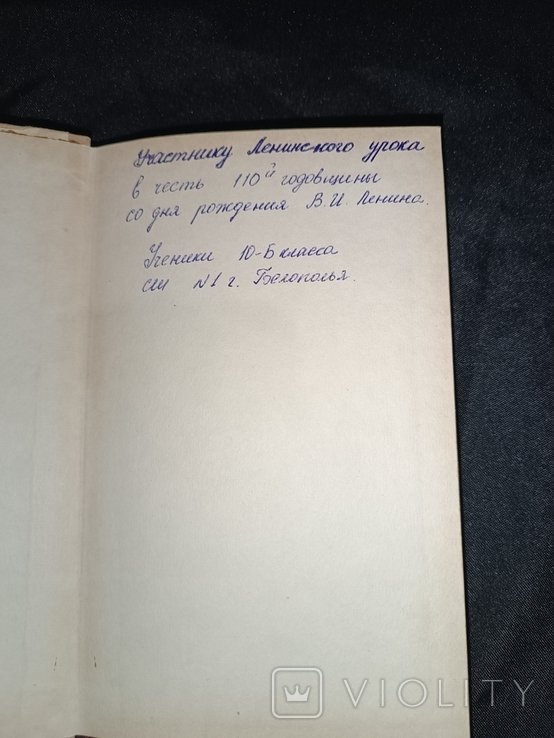 Участнику Ленинского урока
в честь 110й годовщины
со дня рождения В.И. Ленина.
Ученики 10-Б класса
сш №1 г. Белополья.
VIOLITY